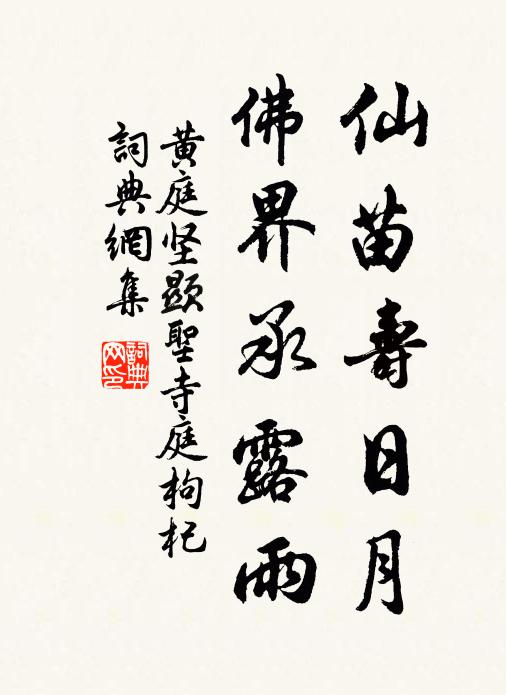 仙苗壽日月
佛界承露雨
黄庭坚顯聖寺庭枸杞
詞典網集
詞典網印